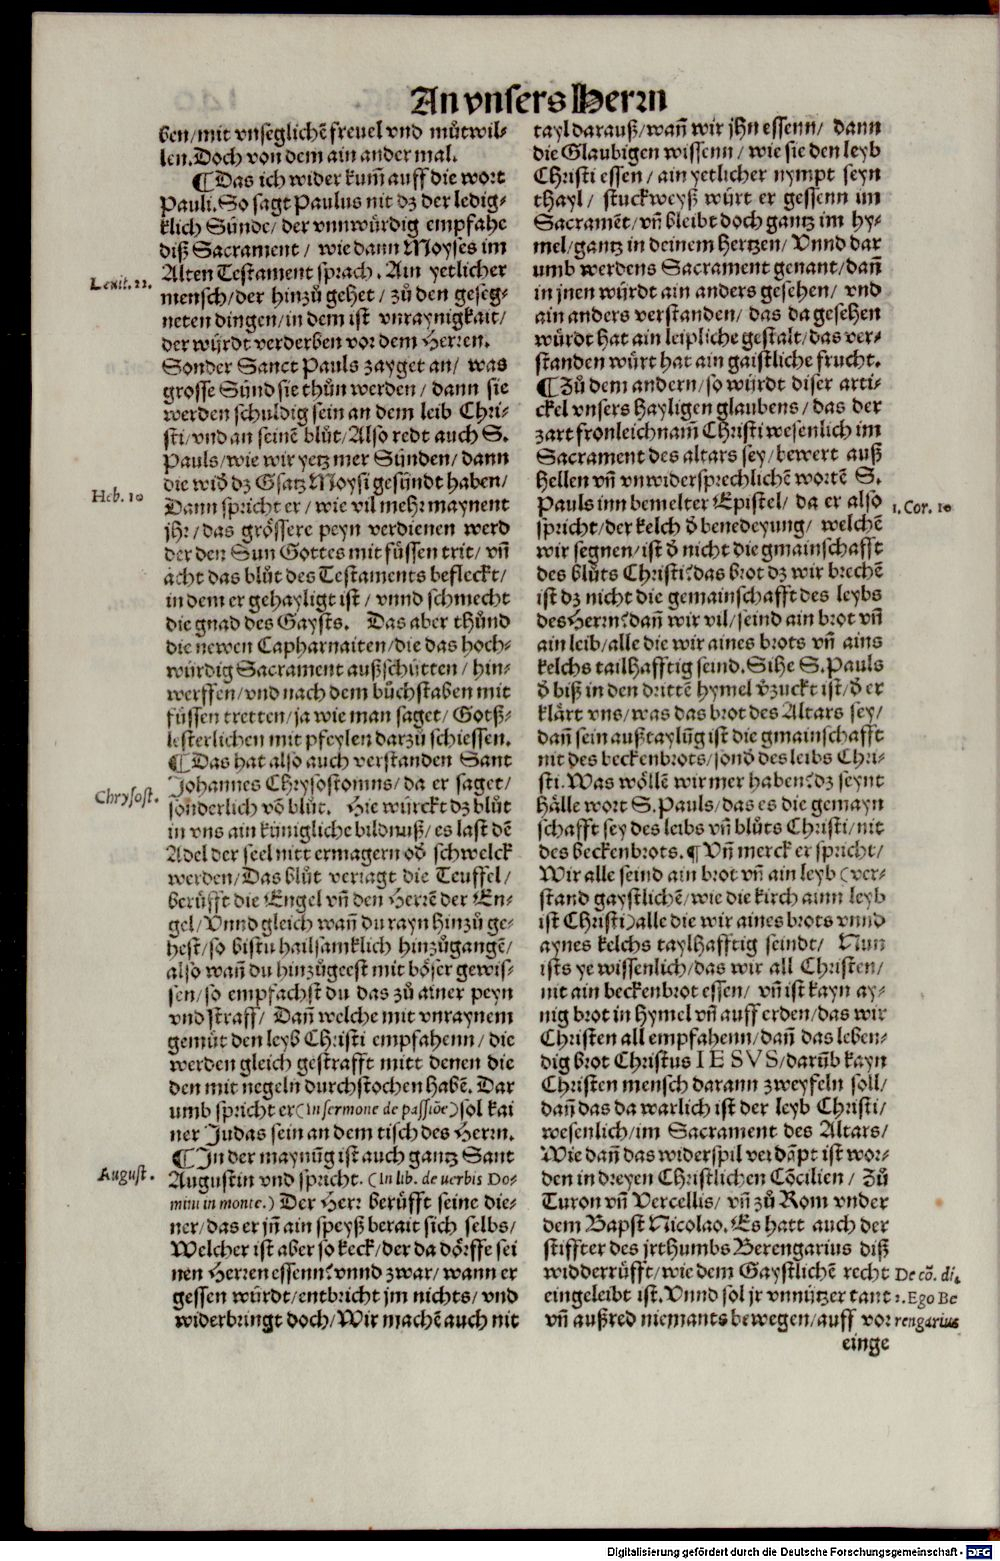 An vnsers Herrn
ben/mit vnseglichē freuel vnd můtwil⸗
len. Doch von dem ain ander mal.
¶ Das ich wider kum̄ auff die wort
Pauli. So sagt Paulus nit dz der ledig⸗
klich Sünde/ der vnnwürdig empfahe
diß Sacrament/ wie dann Moyses im
Alten Testament sprach. Ain yetlicher
mensch/der hinzů gehet/ zů den geseg⸗
neten dingen/in dem ist vnraynigkait/
der würdt verderben vor dem Herren.
Sonder Sanct Pauls zayget an/ was
grosse Sünd sie thůn werden/ dann sie
werden schuldig sein an dem leib Chri⸗
sti/vnd an seinē blůt/Also redt auch S.
Pauls/wie wir yetz mer Sünden/ dann
die wid̄ dz Gsatz Moysi gesündt haben/
Dann spricht er/ wie vil mehr maynent
jhr/das grössere peyn verdienen werd
der den Sun Gottes mit füssen trit/ vn̄
ächt das blůt des Testaments befleckt/
in dem er gehayligt ist/ vnnd schmecht
die gnad des Gaysts. Das aber thůnd
die newen Capharnaiten/die das hoch⸗
würdig Sacrament außschütten/ hin⸗
werffen/vnd nach dem bůchstaben mit
füssen tretten/ja wie man saget/ Gotß⸗
lesterlichen mit pfeylen darzů schiessen.
¶ Das hat also auch verstanden Sant
Johannes Chrysostomus/da er saget/
sonderlich vō blůt. Hie würckt dz blůt
in vns ain künigliche bildnuß/es last dē
Adel der seel nitt ermagern od̄ schwelck
werden/Das blůt veriagt die Teuffel/
berüfft die Engel vn̄ den Herrē der En⸗
gel/Vnnd gleich wan̄ du rayn hinzů ge⸗
hest/so bistu hailsamklich hinzůgangē/
also wan̄ du hinzůgeest mit böser gewis⸗
sen/so empfachst du das zů ainer peyn
vnd straff/ Dan̄ welche mit vnraynem
gemüt den leyb Christi empfahenn/die
werden gleich gestrafft mitt denen die
den mit negeln durchstochen habē. Dar
umb spricht er (In sermone de passiōe) sol kai
ner Judas sein an dem tisch des Herrn.
¶ In der maynūg ist auch gantz Sant
Augustin vnd spricht. (In lib. de uerbis Do-
mini in monte.) Der Herr berüfft seine die⸗
ner/das er jn̄ ain speyß berait sich selbs/
Welcher ist aber so keck/der da dörffe sei
nen Herren essenn? vnnd zwar/ wann er
gessen würdt/entbricht jm nichts/ vnd
widerbringt doch/Wir machē auch nit
Leuit. 22.
Heb. 10
Chrysost.
August.
tayl darauß/wan̄ wir jhn essenn/ dann
die Glaubigen wissenn/wie sie den leyb
Christi essen/ain yetlicher nympt seyn
thayl/ stuckweyß würt er gessenn im
Sacramēt/vn̄ bleibt doch gantz im hy⸗
mel/gantz in deinem Hertzen/Vnnd dar
umb werdens Sacrament genant/dan̄
in jnen würdt ain anders gesehen/ vnd
ain anders verstanden/ das da gesehen
würdt hat ain leipliche gestalt/das ver⸗
standen würt hat ain gaistliche frucht.
¶ Zů dem andern/so würdt diser arti⸗
ckel vnsers hayligen glaubens/das der
zart fronleichnam̄ Christi wesenlich im
Sacrament des altars sey/bewert auß
hellen vn̄ vnwidersprechlichē wortē S.
Pauls inn bemelter Epistel/ da er also
spricht/der kelch d̄ benedeyung/ welchē
wir segnen/ist d̄ nicht die gmainschafft
des blůts Christi? das brot dz wir brechē
ist dz nicht die gemainschafft des leybs
des Herrn? dan̄ wir vil/seind ain brot vn̄
ain leib/alle die wir aines brots vn̄ ains
kelchs tailhafftig seind. Sihe S. Pauls
d̄ biß in den drittē hymel v̄zuckt ist/d̄ er
klärt vns/was das brot des Altars sey/
dan̄ sein außtaylūg ist die gmainschafft
nit des beckenbrots/sond̄ des leibs Chri⸗
sti. Was wöllē wir mer haben? dz seynt
hälle wort S. Pauls/das es die gemayn
schafft sey des leibs vn̄ blůts Christi/nit
des beckenbrots. ¶ Vn̄ merck er spricht/
Wir alle seind ain brot vn̄ ain leyb (ver⸗
stand gaystlichē/wie die kirch ainn leyb
ist Christi) alle die wir aines brots vnnd
aynes kelchs taylhafftig seindt/ Nun
ists ye wissenlich/das wir all Christen/
nit ain beckenbrot essen/ vn̄ ist kayn ay⸗
nig brot in hymel vn̄ auff erden/das wir
Christen all empfahenn/dan̄ das leben⸗
dig brot Christus IESVS/darūb kayn
Christen mensch darann zweyfeln soll/
dan̄ das da warlich ist der leyb Christi/
wesenlich/im Sacrament des Altars/
Wie dan̄ das widerspil verdāpt ist wor⸗
den in dreyen Christlichen Cōcilien/ Zů
Turon vn̄ Vercellis/ vn̄ zů Rom vnder
dem Bapst Nicolao. Es hatt auch der
stiffter des jrthumbs Berengarius diß
widderrüfft/wie dem Gaystlichē recht
eingeleibt ist. Vnnd sol jr vnnützer tant
vn̄ außred niemants bewegen/auff vor
einge
1. Cor. 10
De cō. di.
2. Ego Be
rengarius
Digitalisierung gefördert durch die Deutsche Forschungsgemeinschaft - DFG